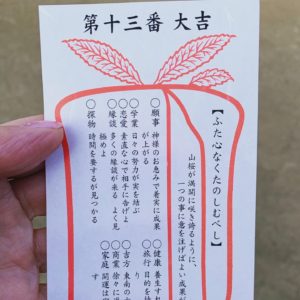 第十三番 大吉
【ふた心なくたのしむべし】
山桜が満開に咲き誇るように、
一つの事に意を注げばよい成果が
○願事 神様のお恵みで着実に成果
が上がる
○学業 日々の努力が実を結ぶ
○恋愛 素直な心で相手に告げよ
○縁談 多くの縁談が来る よく見
極めよ
○探物 時間を要するが見つかる
○健康 養生すれ
○旅行 目的を持
り
○吉方 東南の
○商業 徐々に
○家庭 開運は
す